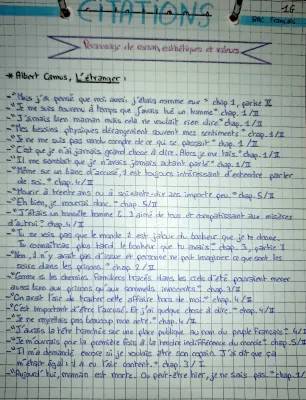 CITATIONS
1G
BAC Français
Personnage de roman, esthétiques et valeurs
* Albert Camus, L'étranger :
- "Mais j'ai pensé que moi aussi j'étais comme eux" chap. 1, partie II
- "Je me suis souvenu à temps que j'avais tué un homme" chap. 1/II
- "J'aimais bien maman mais cela ne voulait rien dire" chap. 1/II
- "Mes besoins physiques dérangeaient souvent mes sentiments" chap. 1/II
- "Je ne me suis pas rendu compte de ce qui se passait" chap. 1/II
- "C'est que je n'ai jamais grand chose à dire. Alors je me tais." chap. 1/II
- "Il me semblait que je n'avais jamais autant parlé" chap. 1/II
- "Même sur un banc d'accusé, il est toujours intéressant d'entendre parler
de soi." chap. 4/II
- "Mourir à trente ans ou à soixante-dix ans importe peu" chap. 5/II
- "Eh bien, je mourrai donc." chap. 5/II
- "J'étais un honnête homme (...) aimé de tous et compatissant aux misères
d'autrui" chap. 4/II
- vois pas que le monde
Tu connaîtras plus tard le bonheur que tu avais" chap. 3, partie 1
- "Non, il n'y avait pas d'issue et personne ne peut imaginer ce que sont les
soirs dans les prisons." chap. 2/II
- "Comme si les chemins familiers tracés dans les ciels d'été pouvaient mener
aussi bien aux prisons qu'aux sommeils innocents" chap. 3/II
- "On avait l'air de traiter cette affaire hors de moi." chap. 4/II
- "C'est important d'être l'accusé. Et j'ai quelque chose à dire." chap. 4/II
- "Je ne regrettais pas beaucoup mon acte." chap. 4/II
- "J'aurais la tête tranchée sur une place publique au nom du peuple français" 4/II
- "Je m'ouvrais pour la première fois à la tendre indifférence du monde" chap. 5/II
- "Il m'a demandé encore si je voulais être son copain. J'ai dit que ça
m'était égal : il a eu l'air content." chap. 3/I
- "Aujourd'hui, maman est morte. Ou peut-être hier, je ne sais pas." chap. 1/I